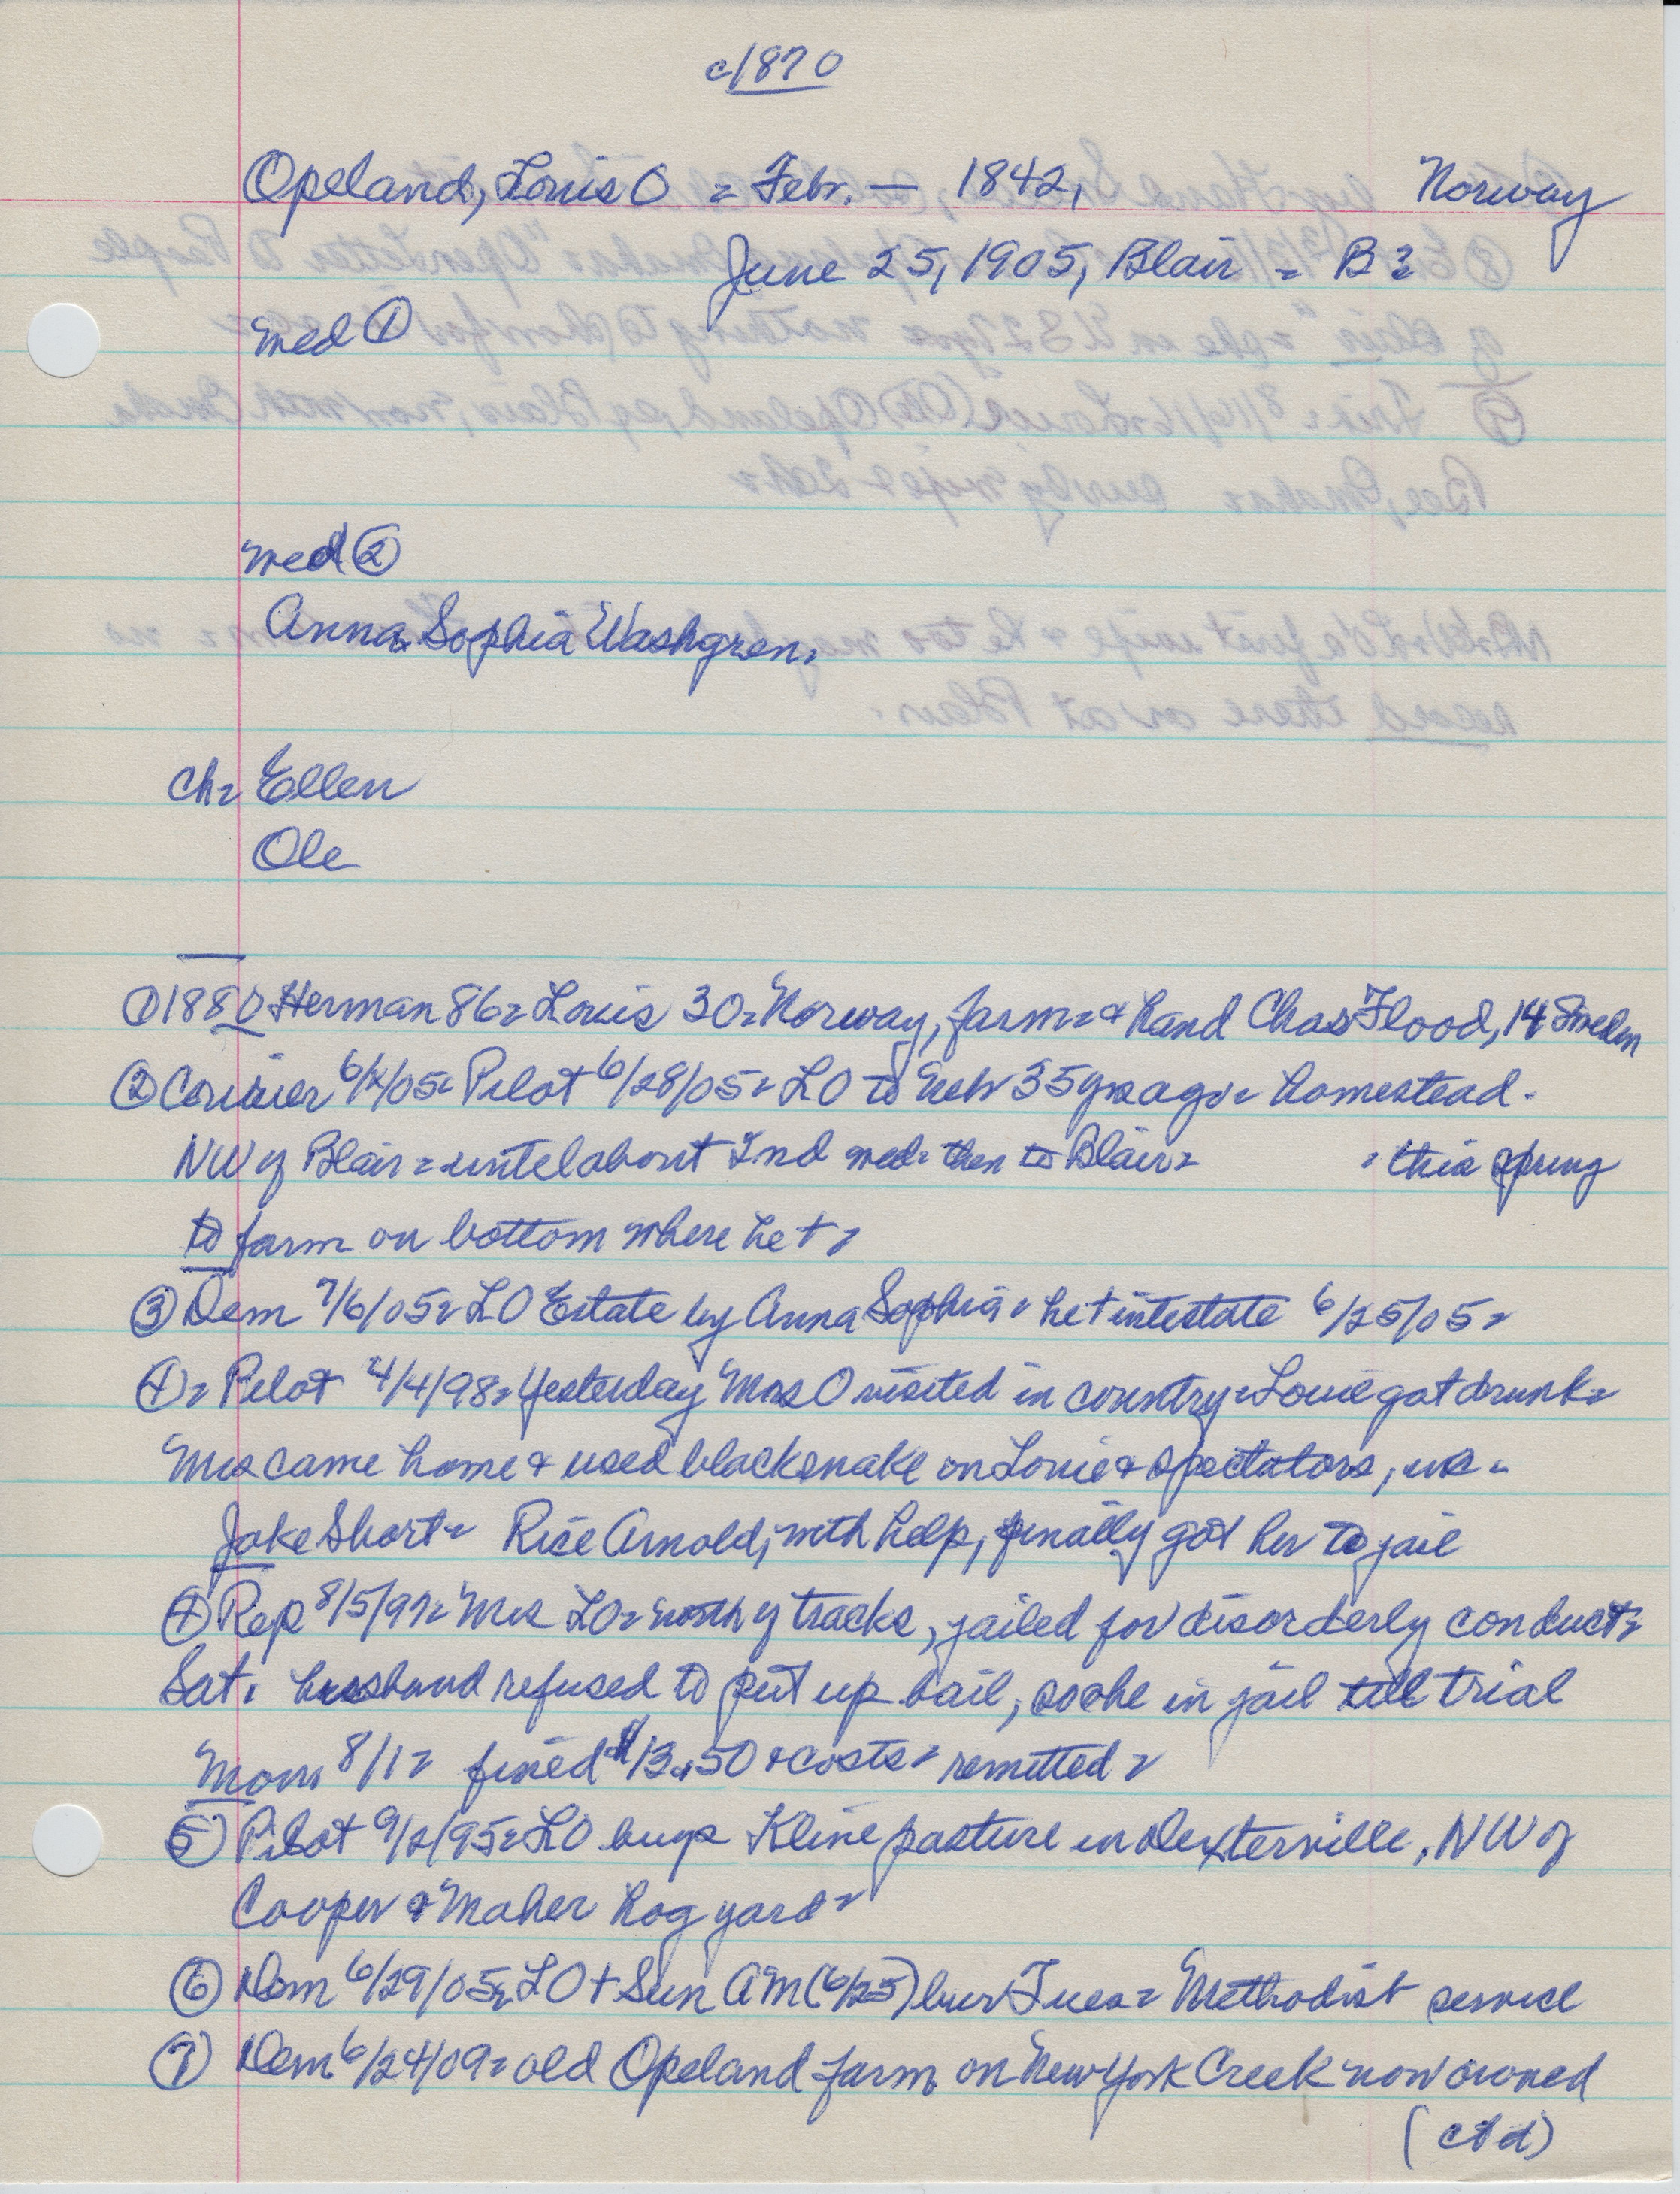 c/1870
Opeland, Louis O = Febr. — 1842, Norway
June 25, 1905, Blair = B?
med ①
med ②
Anna Sophia Washgren.
Ch= Ellen
Ole
① 1880 Herman 86= Louis 30= Norway, farm= & hand Chas Flood, 14 Sweden
② Courier 6/ /05= Pilot 6/28/05= LO to Nebr 35 yrs ago= homestead.
NW of Blair= until about 2nd med= then to Blair= = this spring
to farm on bottom where he †=
③ Dem 7/6/05= LO Estate by Anna Sophia= he † intestate 6/25/05=
④= Pilot 4/4/98= Yesterday Mrs O visited in country= Louie got drunk=
Mrs came home & used blacksnake on Louie & spectators,
Jake Short= Rice Arnold, with help, finally got her to jail
④ Rep 8/5/97= Mrs LO= north of tracks, jailed for disorderly conduct=
Sat. husband refused to put up bail, so she in jail till trial
Mon. 8/1= fined $13.50 & costs= remitted=
⑤ Pilot 9/2/95= LO buys Kline pasture in Dexterville, NW of
Cooper & Maher hog yard=
⑥ Dem 6/29/05= LO † Sun AM (6/25) bur Tues= Methodist service
⑦ Dem 6/24/09= old Opeland farm on New York Creek now owned
(ctd)